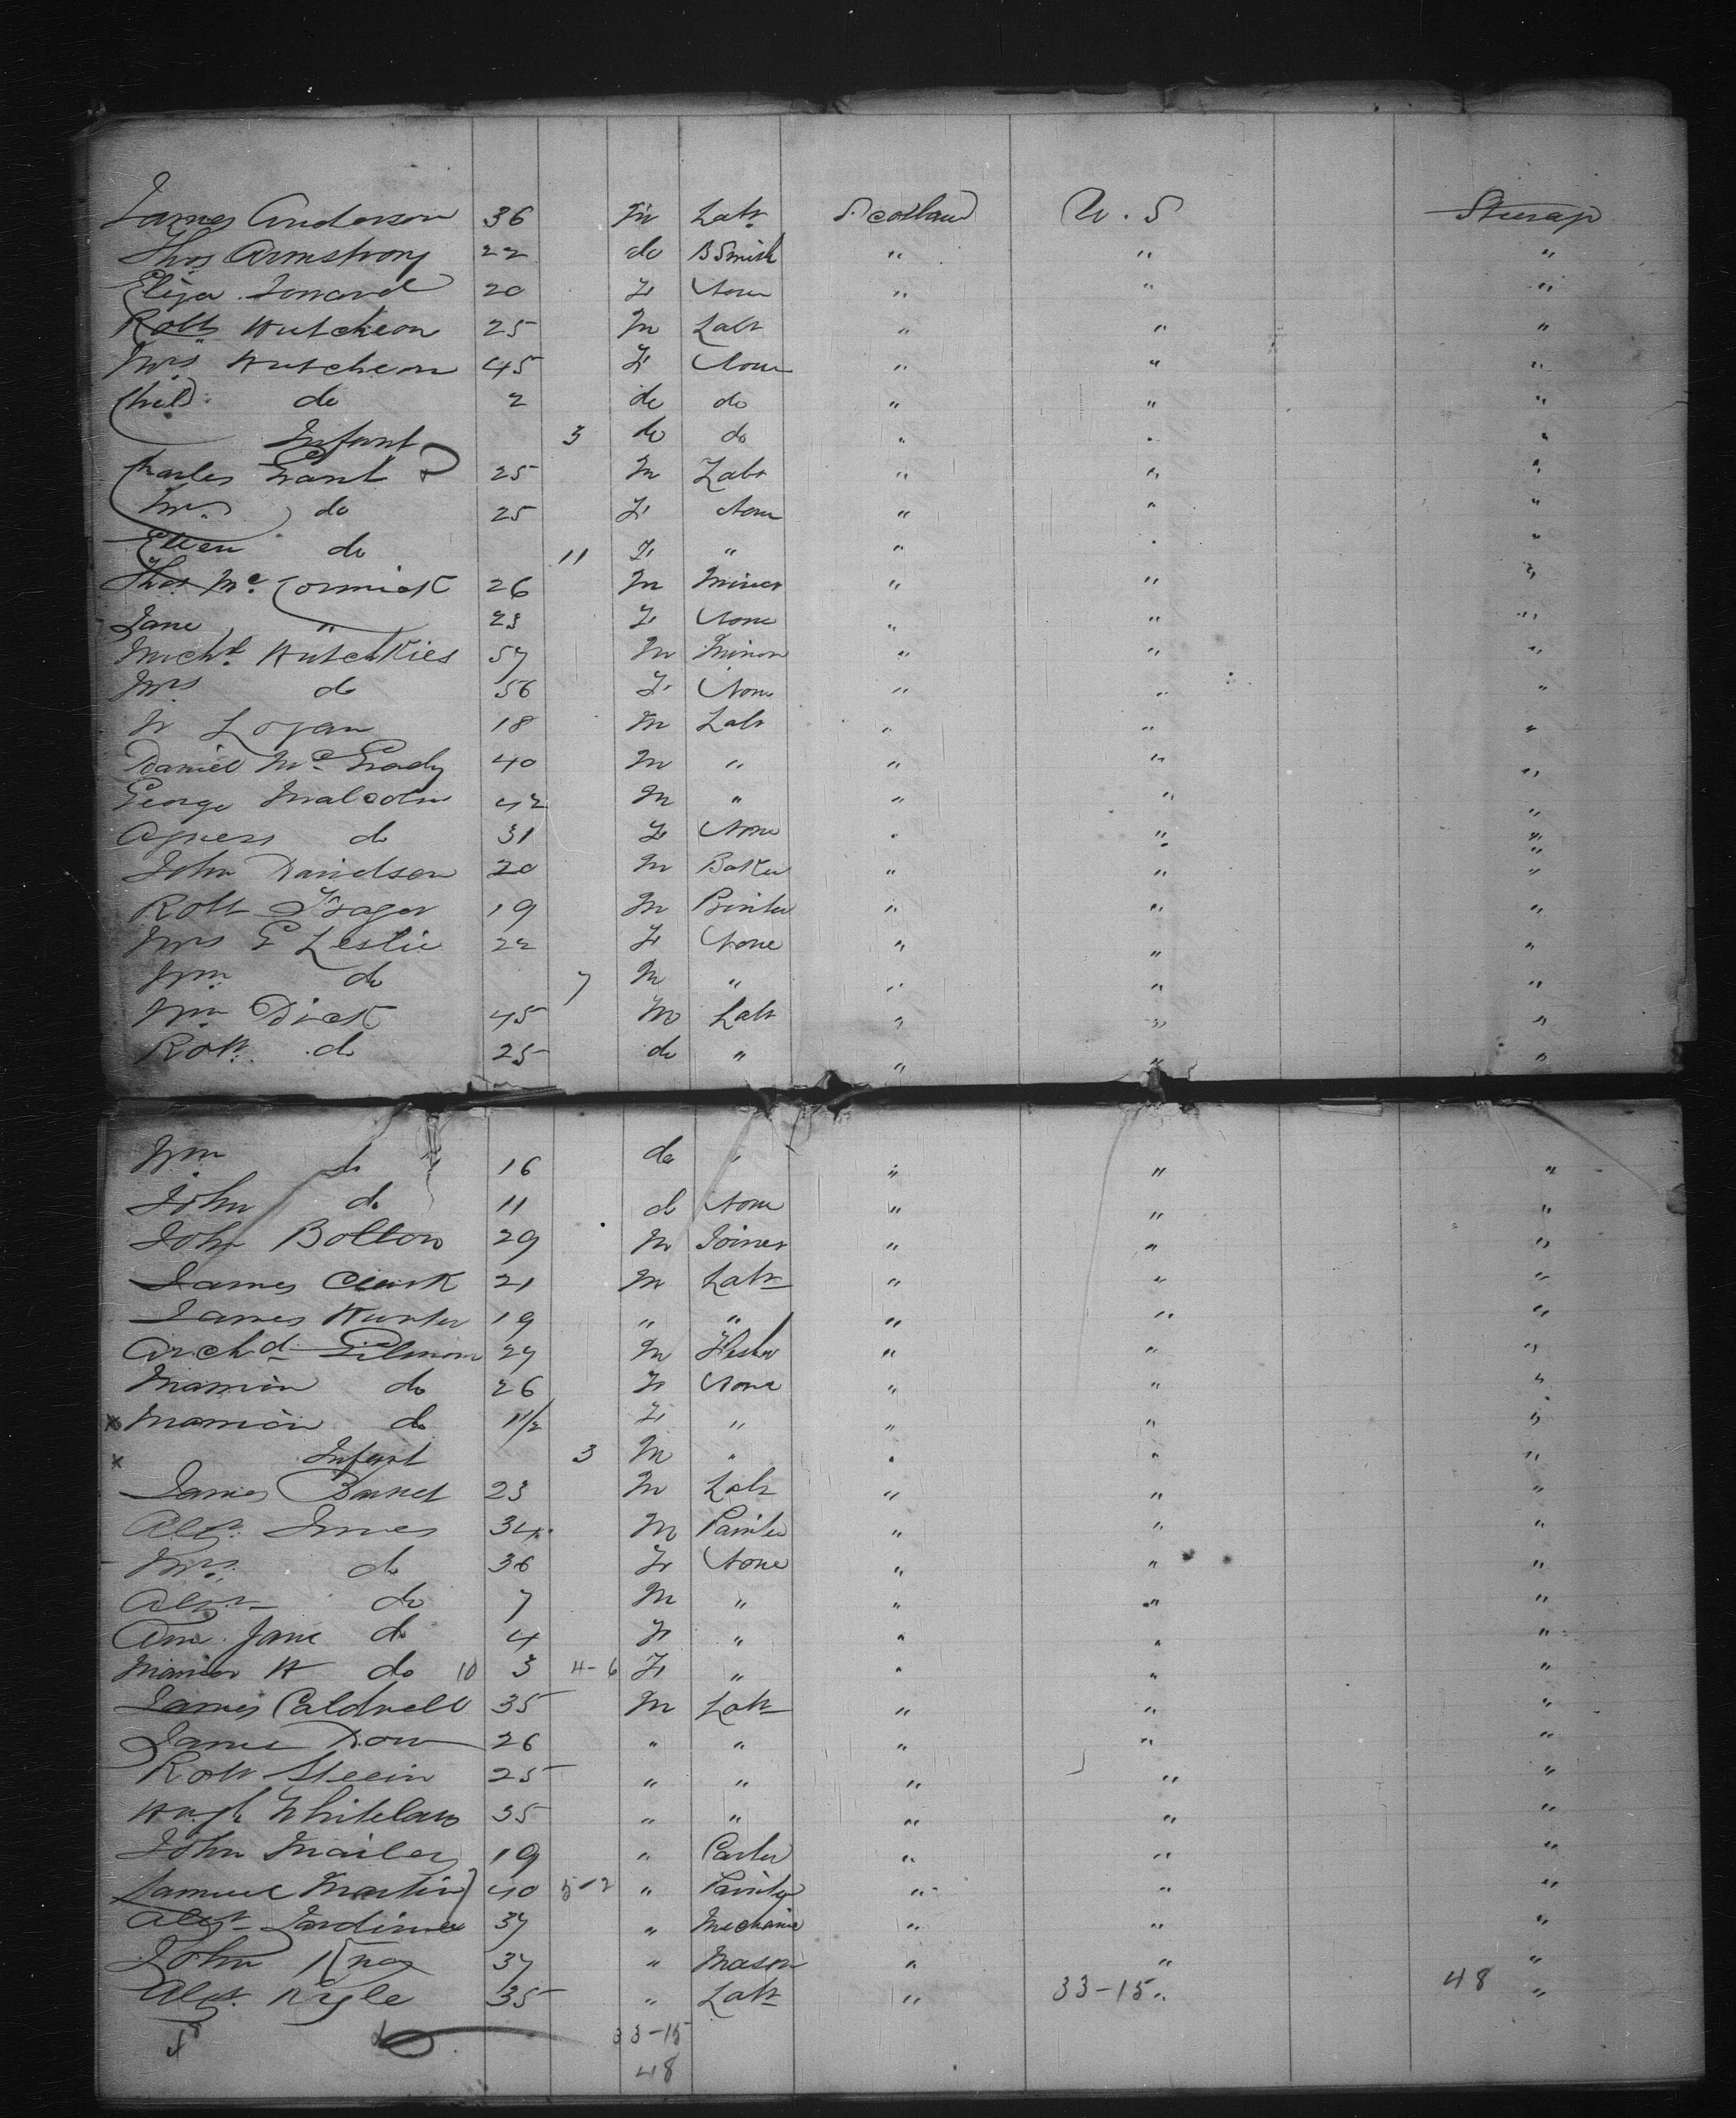 James Anderson 36 M Labr. Scotland U.S Steerage
Thos Armstrong 22 do B Smith " " "
Eliza 20 F None " " "
Robt Hutcheon 25 M Labr " " "
Mrs Hutcheon 45 F None " " "
Child do 2 do do " " "
Infant 3 do do " " "
Charles Grant 25 M Labr " " "
Mrs do 25 F None " " "
Ellen do 11 F " " " "
Thos McCormick 26 M Miner " " "
Jane " 23 F None " " "
Michl Hutchkies 57 M Minor " " "
Mrs do 56 F None " " "
W Logan 18 M Labr " " "
Daniel McGrady 40 M " " " "
George Malcolm 42 M " " " "
Agness do 31 F None " " "
John Davidson 20 M Baker " " "
Robt Frager 19 M Printer " " "
Mrs G Leslie 22 F None " " "
Wm do 7 M " " " "
Wm Dick 45 M Labr " " "
Robt. do 25 do " " " "
Wm do 16 do " " " "
John do 11 do None " " "
John Bolton 29 M Joiner " " "
James Clark 21 M Labr " " "
James Hunter 19 " " " " "
Archd Gilmore 27 M " " "
Marrion do 26 F None " " "
x Marrion do 1 1/2 F " " " "
x Infant 3 M " " " "
James Barret 23 M Labr " " "
Alexr. Innes 34 M Painter " " "
Mrs. do 36 F None " " "
Alexr do 7 M " " " "
Ann Jane do 4 F " " " "
Marrion H do 10 3 4-6 F " " " "
James Caldwell 35 M Labr " " "
James Dow 26 " " " " "
Robt Steein 25 " " " " "
Hugh Whitelaw 35 " " " " "
John Mailer 19 " Carter " " "
Samuel Martin 40 5-12 " Painter " " "
Alexr Jardine 37 " Mechanic " " "
John Knox 37 " Mason " " "
Alexr. Kyle 35 " Labr " 33-15 " 48 "
48 33-15
48